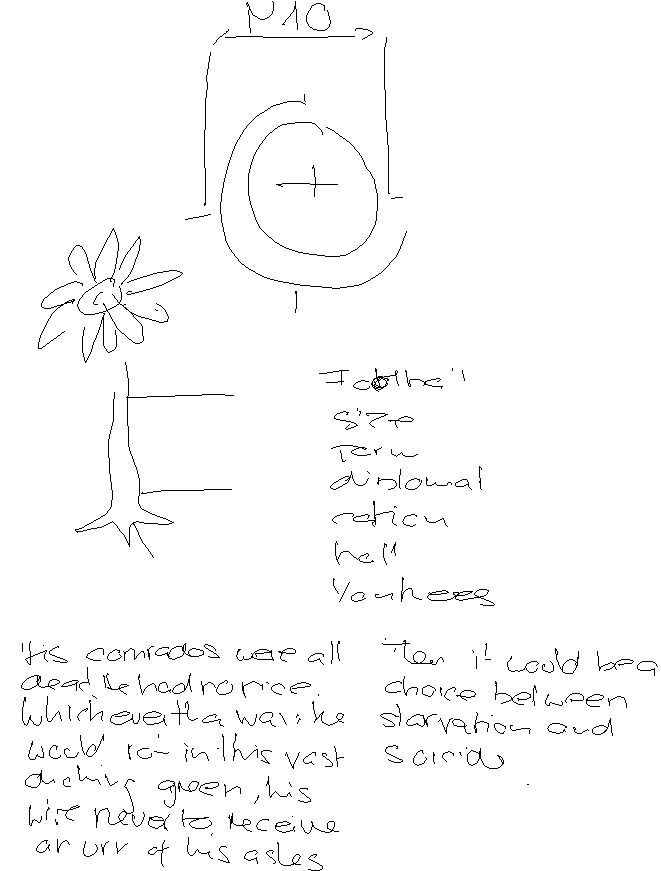 M10
Football
size
Term
diplomat
ration
hall
Yankees
His comrades were all
dead He had no rice.
Whichever tha was, he
would rot in this vast
green, his
wife never to receive
an urn of his ashes
Then it would be a
choice between
starvation and
suicide